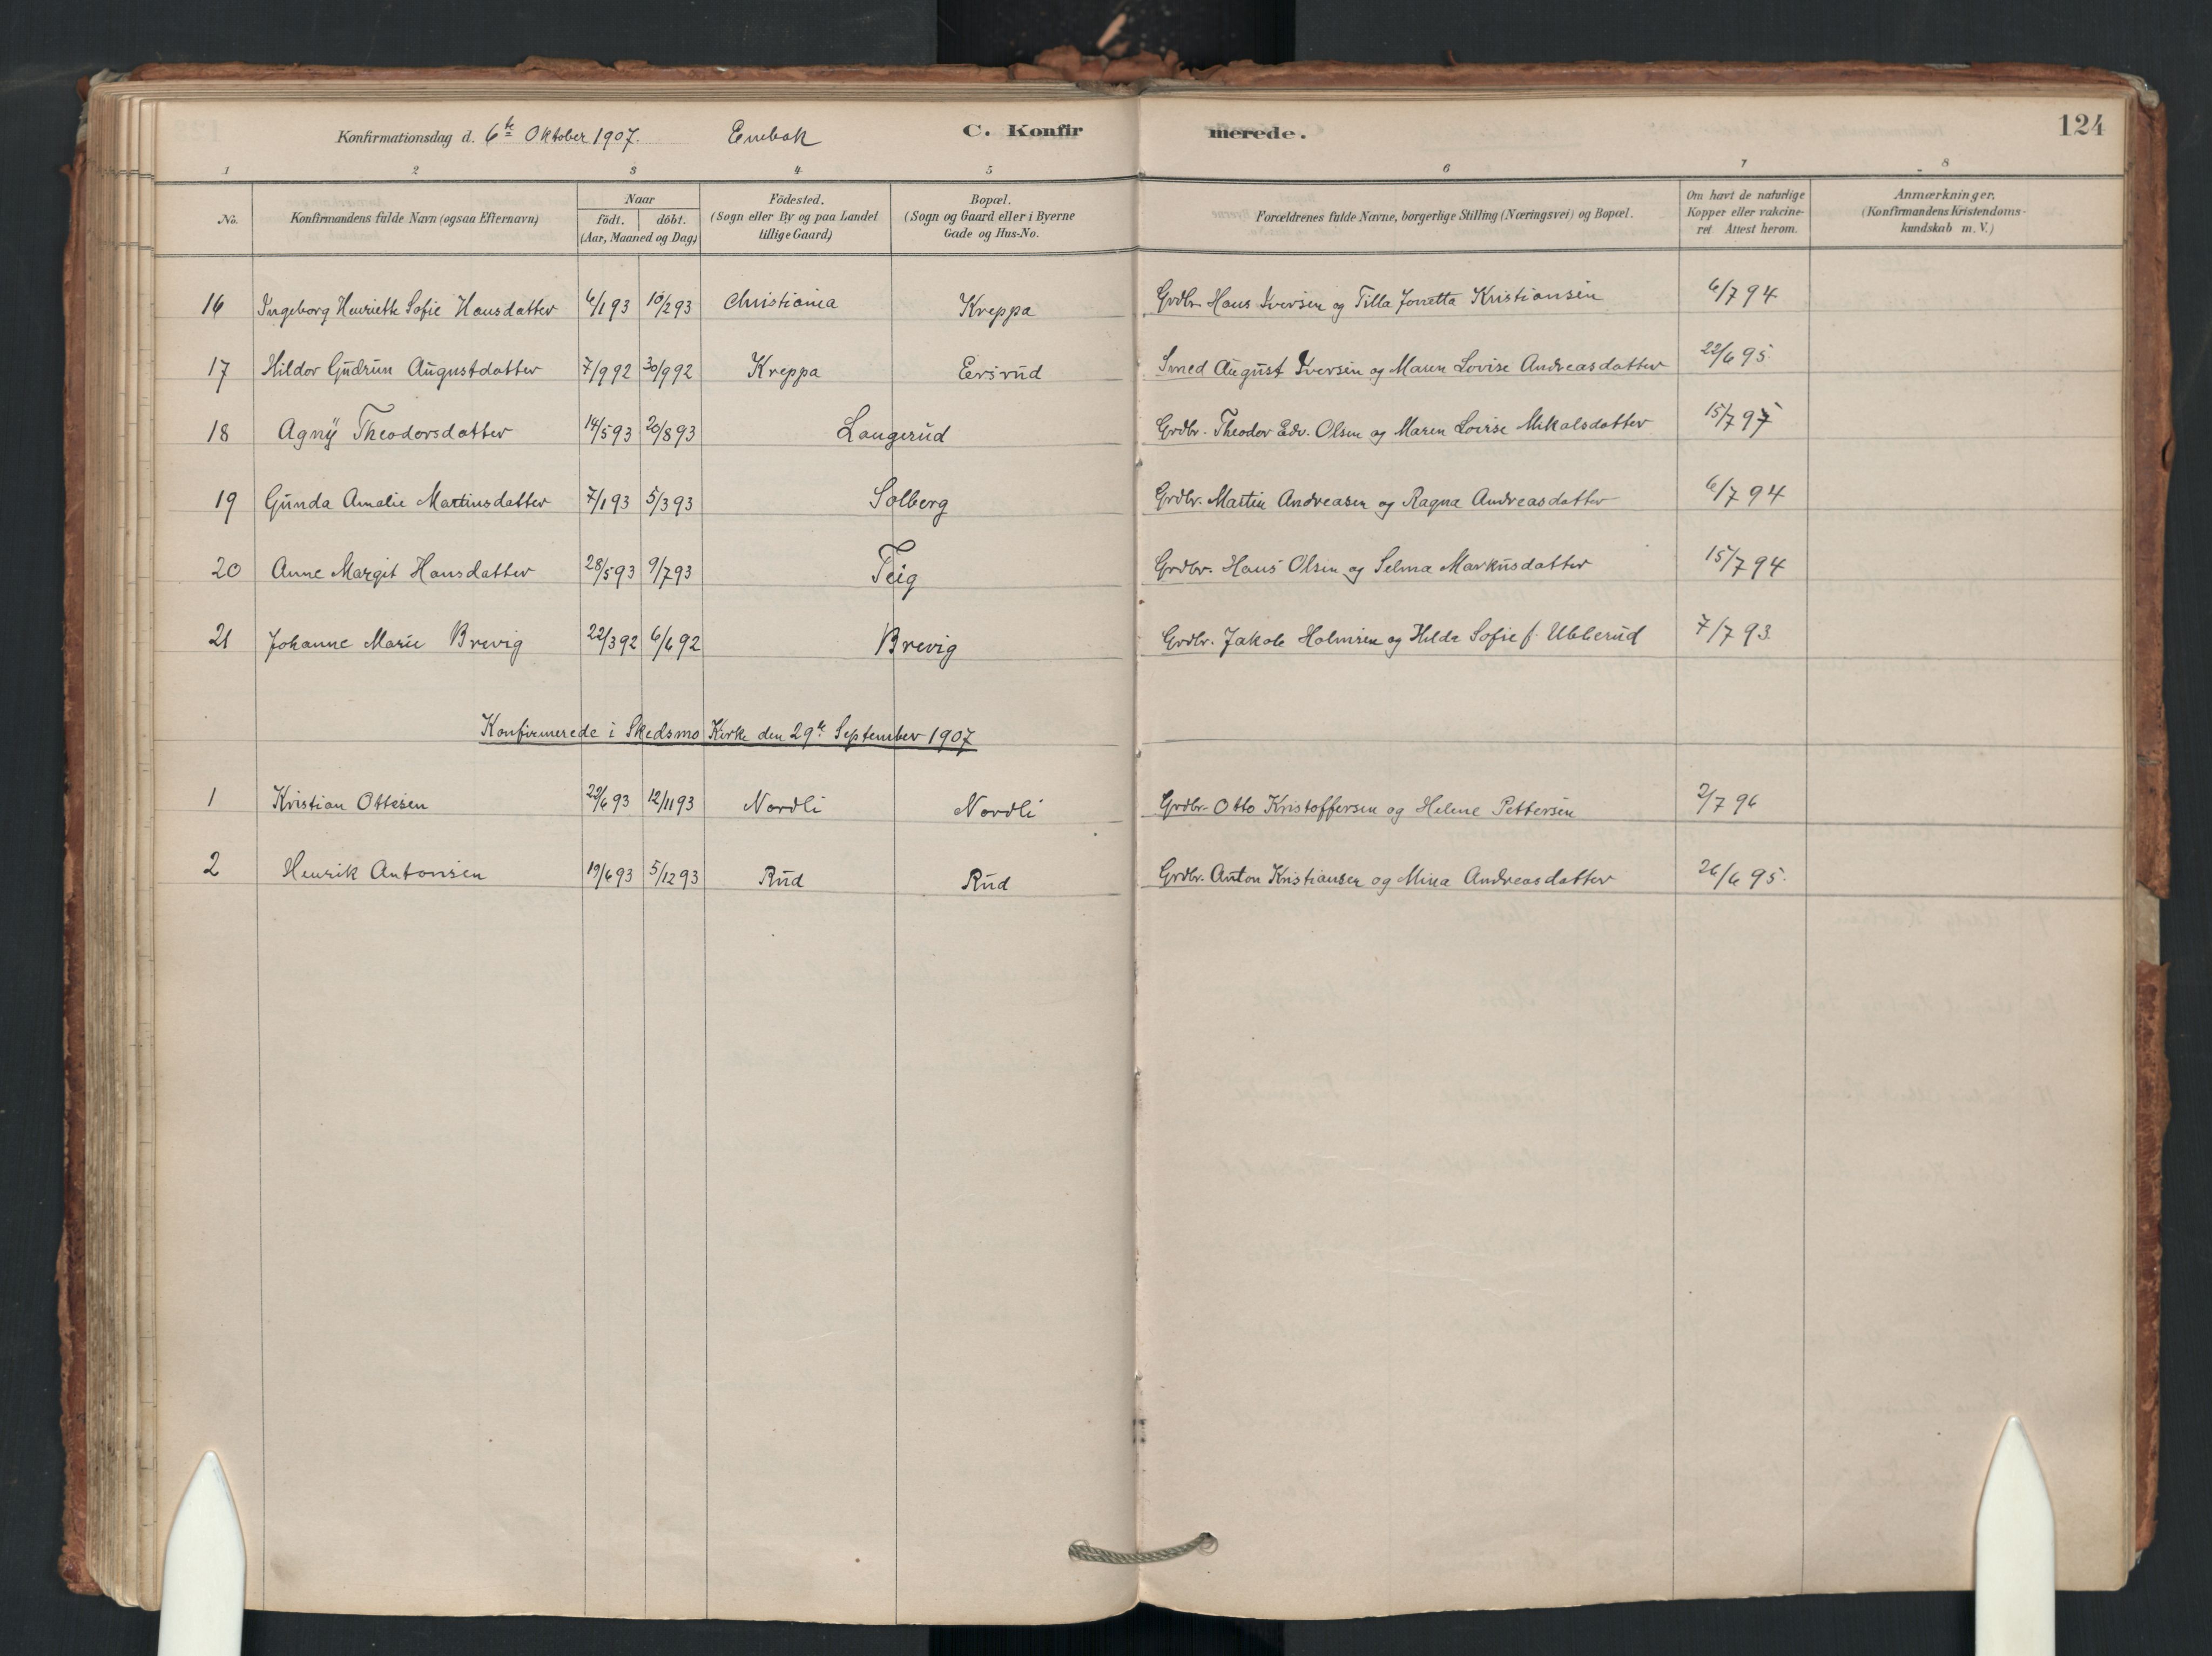 124
Konfirmationsdag d. 6te Oktober 1907. Enebak C. Konfirmerede.
1 2 3 4 5 6 7 8
No. Konfirmandens fulde Navn (ogsaa Efternavn) Naar födt. döbt. (Aar, Maaned og Dag) Födested. (Sogn eller By og paa Landet tillige Gaard) Bopæl. (Sogn og Gaard eller i Byerne Gade og Hus-No. Forældrenes fulde Navne, borgerlige Stilling (Næringsvei) og Bopæl. Om havt de naturlige Kopper eller vakcineret Attest herom. Anmærkninger. (Konfirmandens Kristendomskundskab m. V.)
16 Ingeborg Henriette Sofie Hansdatter 6/1 93 10/2 93 Christiania Kreppa Grdbr. Hans Iversen og Tilla Jonetta Kristiansen 6/7 94
17 Hildor Gudrun Augustdatter 7/9 92 30/9 92 Kreppa Eersrud Smed August Iversen og Maren Lovise Andreasdatter 22/6 95.
18 Agny Theodorsdatter 14/5 93 20/8 93 Langerud Grdbr. Theodor Edv. Olsen og Maren Lovise Mikalsdatter 15/7 97
19 Gunda Amalie Martinsdatter 7/1 93 5/3 93 Solberg Grdbr. Martin Andreasen og Ragna Andreasdatter 6/7 94
20 Anne Margit Hansdatter 28/5 93 9/7 93 Teig Grdbr. Hans Olsen og Selma Markusdatter 15/7 94
21 Johanne Marie Brevig 22/3 92 6/6 92 Brevig Grdbr. Jakob Holmsen og Hilda Sofie f. Ubberud 7/7 93.
Konfirmerede i Skedsmo Kirke den 29de September 1907
1 Kristian Ottesen 22/6 93 12/11 93 Nordli Nordli Grdbr. Otto Kristoffersen og Helene Pettersen 2/7 96
2 Henrik Antonsen 19/6 93 5/12 93 Rud Rud Grdbr. Anton Kristiansen og Mina Andreasdatter 26/6 95.